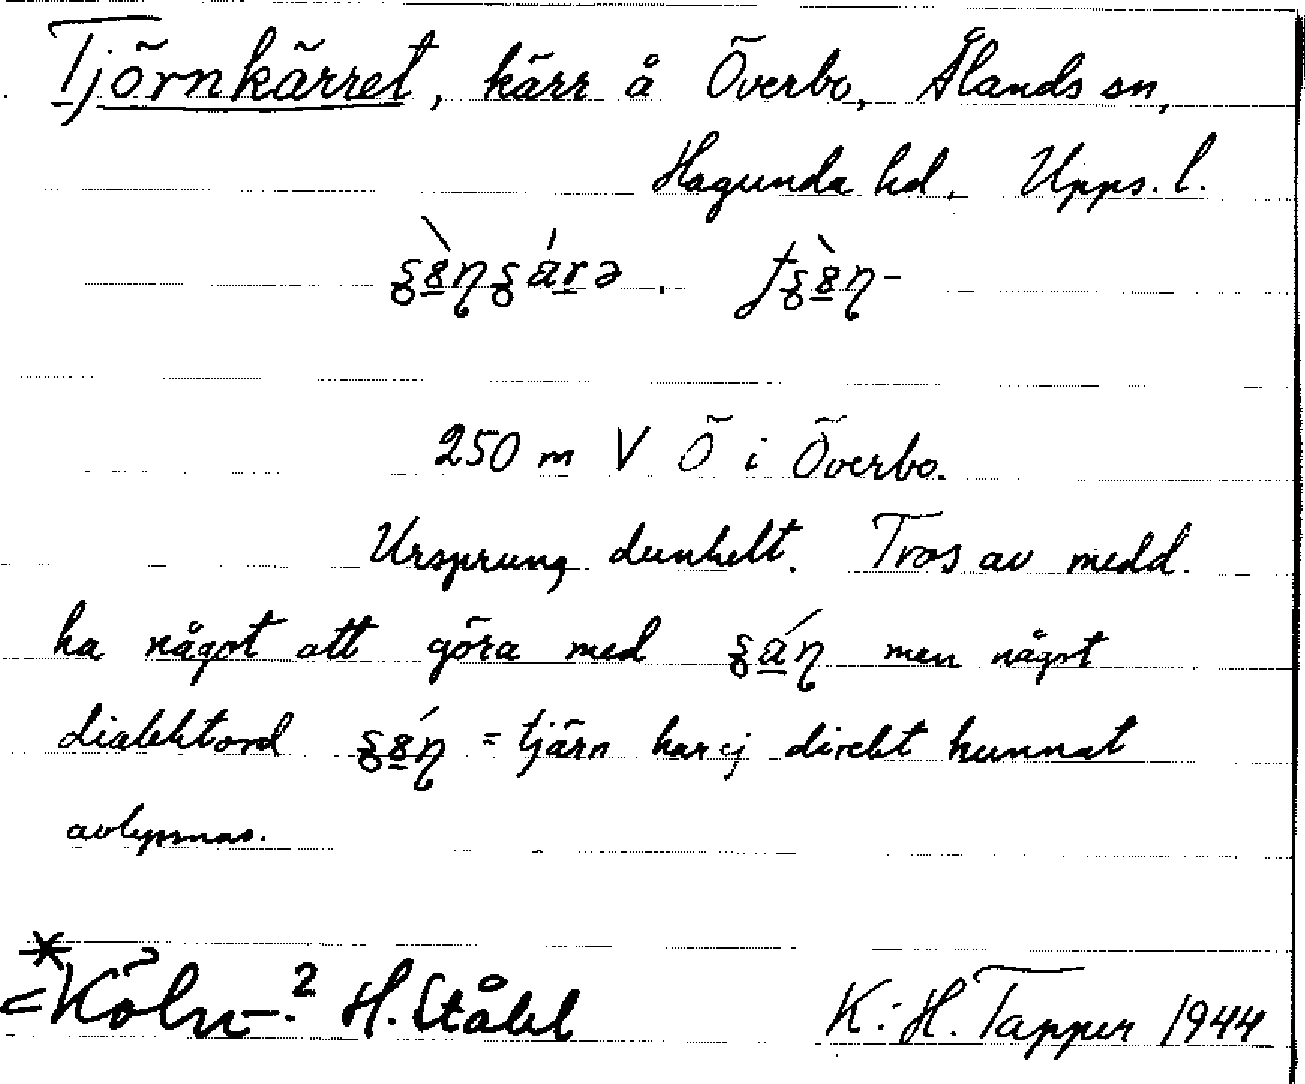 Tjörnkärret, kärr å Överbo, Ålands sn,
Hagunda hd. Upps. l.
250 m V Ö i Överbo.
Ursprung dunkelt. Tros av medd.
ha något att göra med men något
dialektord = tjärn har ej direkt kunnat
avlyssnas.
H. Ståhl K.-H. Tapper 1944